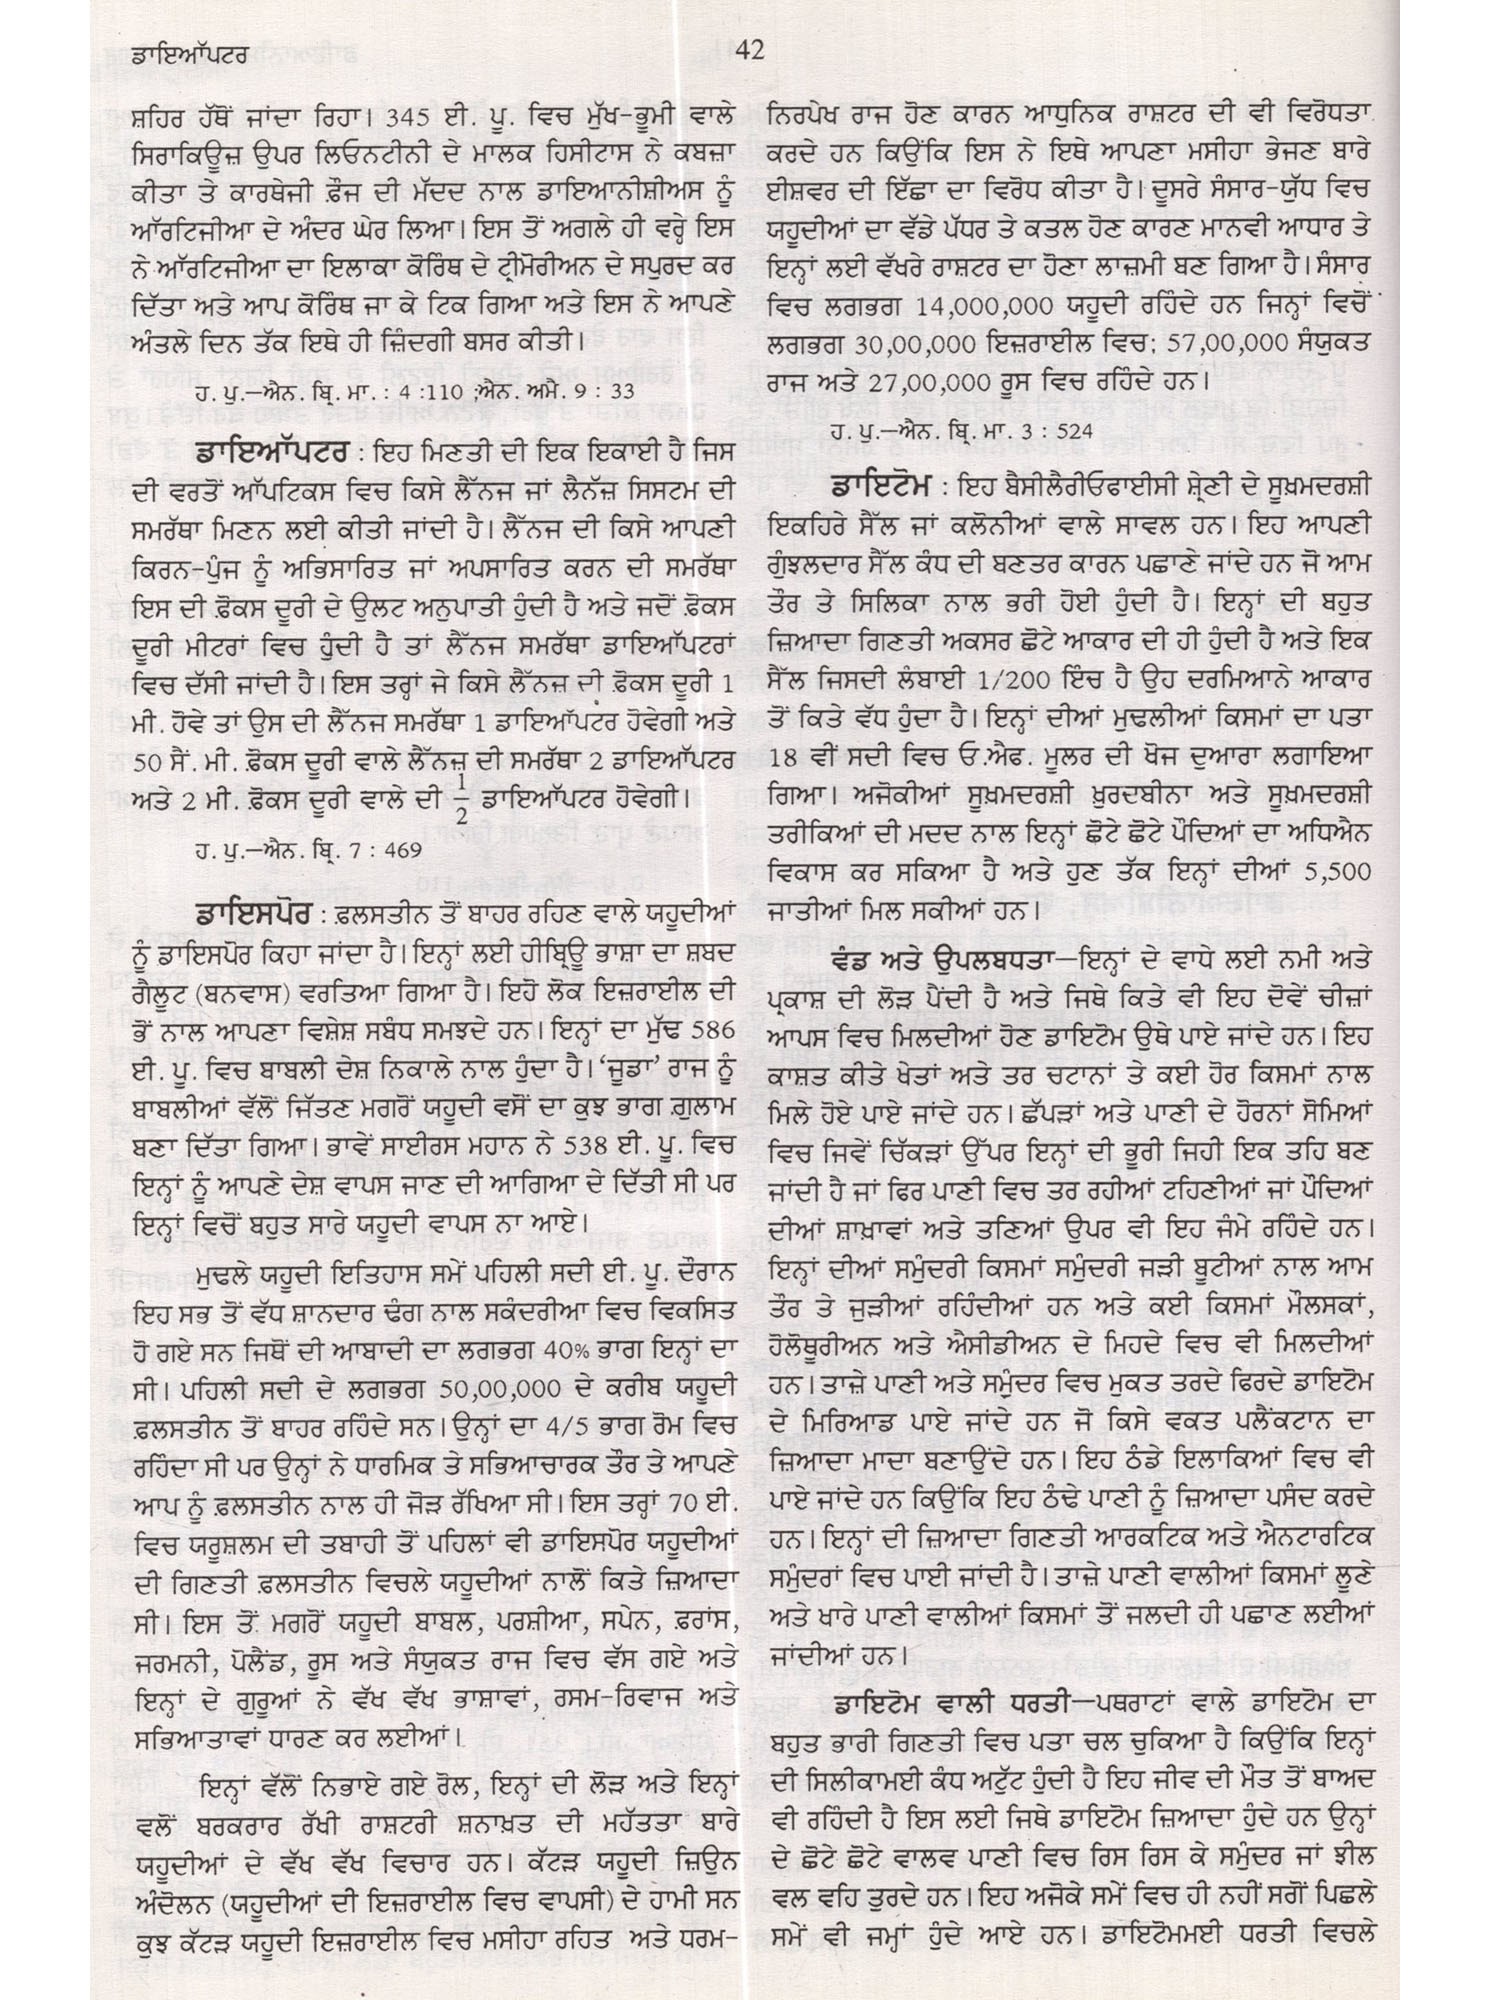 ਡਾਇਆੱਪਟਰ
42
ਸ਼ਹਿਰ ਹੱਥੋਂ ਜਾਂਦਾ ਰਿਹਾ। 345 ਈ. ਪੂ. ਵਿਚ ਮੁੱਖ-ਭੂਮੀ ਵਾਲੇ
ਸਿਰਾਕਿਊਜ਼ ਉਪਰ ਲਿਓਨਟੀਨੀ ਦੇ ਮਾਲਕ ਹਿਸੀਟਾਸ ਨੇ ਕਬਜ਼ਾ
ਕੀਤਾ ਤੇ ਕਾਰਥੇਜੀ ਫ਼ੌਜ ਦੀ ਮੱਦਦ ਨਾਲ ਡਾਇਆਨੀਸ਼ੀਅਸ ਨੂੰ
ਆੱਰਟਿਜੀਆ ਦੇ ਅੰਦਰ ਘੇਰ ਲਿਆ। ਇਸ ਤੋਂ ਅਗਲੇ ਹੀ ਵਰ੍ਹੇ ਇਸ
ਨੇ ਆੱਰਟਿਜੀਆ ਦਾ ਇਲਾਕਾ ਕੋਰਿੰਥ ਦੇ ਟ੍ਰੀਮੋਰੀਅਨ ਦੇ ਸਪੁਰਦ ਕਰ
ਦਿੱਤਾ ਅਤੇ ਆਪ ਕੋਰਿੰਥ ਜਾ ਕੇ ਟਿਕ ਗਿਆ ਅਤੇ ਇਸ ਨੇ ਆਪਣੇ
ਅੰਤਲੇ ਦਿਨ ਤੱਕ ਇਥੇ ਹੀ ਜ਼ਿੰਦਗੀ ਬਸਰ ਕੀਤੀ।
ਹ. ਪੁ.—ਐਨ. ਬ੍ਰਿ. ਮਾ. : 4 :110 ;ਐਨ. ਅਮੈ. 9 : 33
ਡਾਇਆੱਪਟਰ : ਇਹ ਮਿਣਤੀ ਦੀ ਇਕ ਇਕਾਈ ਹੈ ਜਿਸ
ਦੀ ਵਰਤੋਂ ਆੱਪਟਿਕਸ ਵਿਚ ਕਿਸੇ ਲੈੱਨਜ ਜਾਂ ਲੈਨੱਜ਼ ਸਿਸਟਮ ਦੀ
ਸਮਰੱਥਾ ਮਿਣਨ ਲਈ ਕੀਤੀ ਜਾਂਦੀ ਹੈ। ਲੈੱਨਜ ਦੀ ਕਿਸੇ ਆਪਣੀ
ਕਿਰਨ-ਪੁੰਜ ਨੂੰ ਅਭਿਸਾਰਿਤ ਜਾਂ ਅਪਸਾਰਿਤ ਕਰਨ ਦੀ ਸਮਰੱਥਾ
ਇਸ ਦੀ ਫ਼ੋਕਸ ਦੂਰੀ ਦੇ ਉਲਟ ਅਨੁਪਾਤੀ ਹੁੰਦੀ ਹੈ ਅਤੇ ਜਦੋਂ ਫ਼ੋਕਸ
ਦੂਰੀ ਮੀਟਰਾਂ ਵਿਚ ਹੁੰਦੀ ਹੈ ਤਾਂ ਲੈੱਨਜ ਸਮਰੱਥਾ ਡਾਇਆੱਪਟਰਾਂ
ਵਿਚ ਦੱਸੀ ਜਾਂਦੀ ਹੈ। ਇਸ ਤਰ੍ਹਾਂ ਜੇ ਕਿਸੇ ਲੈੱਨਜ਼ ਦੀ ਫ਼ੋਕਸ ਦੂਰੀ 1
ਮੀ. ਹੋਵੇ ਤਾਂ ਉਸ ਦੀ ਲੈੱਨਜ ਸਮਰੱਥਾ 1 ਡਾਇਆੱਪਟਰ ਹੋਵੇਗੀ ਅਤੇ
50 ਸੈਂ.ਮੀ. ਫ਼ੋਕਸ ਦੂਰੀ ਵਾਲੇ ਲੈੱਨਜ਼ ਦੀ ਸਮਰੱਥਾ 2 ਡਾਇਆੱਪਟਰ
ਅਤੇ 2 ਮੀ. ਫ਼ੋਕਸ ਦੂਰੀ ਵਾਲੇ ਦੀ 1/2 ਡਾਇਆੱਪਟਰ ਹੋਵੇਗੀ।
ਹ. ਪੁ.—ਐਨ. ਬ੍ਰਿ. 7 : 469
ਡਾਇਸਪੋਰ : ਫ਼ਲਸਤੀਨ ਤੋਂ ਬਾਹਰ ਰਹਿਣ ਵਾਲੇ ਯਹੂਦੀਆਂ
ਨੂੰ ਡਾਇਸਪੋਰ ਕਿਹਾ ਜਾਂਦਾ ਹੈ। ਇਨ੍ਹਾਂ ਲਈ ਹੀਬ੍ਰਿਊ ਭਾਸ਼ਾ ਦਾ ਸ਼ਬਦ
ਗੈਲੂਟ (ਬਨਵਾਸ) ਵਰਤਿਆ ਗਿਆ ਹੈ। ਇਹੋ ਲੋਕ ਇਜ਼ਰਾਈਲ ਦੀ
ਭੌਂ ਨਾਲ ਆਪਣਾ ਵਿਸ਼ੇਸ਼ ਸਬੰਧ ਸਮਝਦੇ ਹਨ। ਇਨ੍ਹਾਂ ਦਾ ਮੁੱਢ 586
ਈ. ਪੂ. ਵਿਚ ਬਾਬਲੀ ਦੇਸ਼ ਨਿਕਾਲੇ ਨਾਲ ਹੁੰਦਾ ਹੈ। ‘ਜੂਡਾ’ ਰਾਜ ਨੂੰ
ਬਾਬਲੀਆਂ ਵੱਲੋਂ ਜਿੱਤਣ ਮਗਰੋਂ ਯਹੂਦੀ ਵਸੋਂ ਦਾ ਕੁਝ ਭਾਗ ਗ਼ੁਲਾਮ
ਬਣਾ ਦਿੱਤਾ ਗਿਆ। ਭਾਵੇਂ ਸਾਈਰਸ ਮਹਾਨ ਨੇ 538 ਈ. ਪੂ. ਵਿਚ
ਇਨ੍ਹਾਂ ਨੂੰ ਆਪਣੇ ਦੇਸ਼ ਵਾਪਸ ਜਾਣ ਦੀ ਆਗਿਆ ਦੇ ਦਿੱਤੀ ਸੀ ਪਰ
ਇਨ੍ਹਾਂ ਵਿਚੋਂ ਬਹੁਤ ਸਾਰੇ ਯਹੂਦੀ ਵਾਪਸ ਨਾ ਆਏ।
ਮੁਢਲੇ ਯਹੂਦੀ ਇਤਿਹਾਸ ਸਮੇਂ ਪਹਿਲੀ ਸਦੀ ਈ. ਪੂ. ਦੌਰਾਨ
ਇਹ ਸਭ ਤੋਂ ਵੱਧ ਸ਼ਾਨਦਾਰ ਢੰਗ ਨਾਲ ਸਕੰਦਰੀਆ ਵਿਚ ਵਿਕਸਿਤ
ਹੋ ਗਏ ਸਨ ਜਿਥੋਂ ਦੀ ਆਬਾਦੀ ਦਾ ਲਗਭਗ 40% ਭਾਗ ਇਨ੍ਹਾਂ ਦਾ
ਸੀ। ਪਹਿਲੀ ਸਦੀ ਦੇ ਲਗਭਗ 50,00,000 ਦੇ ਕਰੀਬ ਯਹੂਦੀ
ਫ਼ਲਸਤੀਨ ਤੋਂ ਬਾਹਰ ਰਹਿੰਦੇ ਸਨ। ਉਨ੍ਹਾਂ ਦਾ 4/5 ਭਾਗ ਰੋਮ ਵਿਚ
ਰਹਿੰਦਾ ਸੀ ਪਰ ਉਨ੍ਹਾਂ ਨੇ ਧਾਰਮਿਕ ਤੇ ਸਭਿਆਚਾਰਕ ਤੌਰ ਤੇ ਆਪਣੇ
ਆਪ ਨੂੰ ਫ਼ਲਸਤੀਨ ਨਾਲ ਹੀ ਜੋੜ ਰੱਖਿਆ ਸੀ। ਇਸ ਤਰ੍ਹਾਂ 70 ਈ.
ਵਿਚ ਯਰੂਸ਼ਲਮ ਦੀ ਤਬਾਹੀ ਤੋਂ ਪਹਿਲਾਂ ਵੀ ਡਾਇਸਪੋਰ ਯਹੂਦੀਆਂ
ਦੀ ਗਿਣਤੀ ਫ਼ਲਸਤੀਨ ਵਿਚਲੇ ਯਹੂਦੀਆਂ ਨਾਲੋਂ ਕਿਤੇ ਜ਼ਿਆਦਾ
ਸੀ। ਇਸ ਤੋਂ ਮਗਰੋਂ ਯਹੂਦੀ ਬਾਬਲ, ਪਰਸ਼ੀਆ, ਸਪੇਨ, ਫ਼ਰਾਂਸ,
ਜਰਮਨੀ, ਪੋਲੈਂਡ, ਰੂਸ ਅਤੇ ਸੰਯੁਕਤ ਰਾਜ ਵਿਚ ਵੱਸ ਗਏ ਅਤੇ
ਇਨ੍ਹਾਂ ਦੇ ਗੁਰੂਆਂ ਨੇ ਵੱਖ ਵੱਖ ਭਾਸ਼ਾਵਾਂ, ਰਸਮ-ਰਿਵਾਜ ਅਤੇ
ਸਭਿਆਤਾਵਾਂ ਧਾਰਣ ਕਰ ਲਈਆਂ।
ਇਨ੍ਹਾਂ ਵੱਲੋਂ ਨਿਭਾਏ ਗਏ ਰੋਲ, ਇਨ੍ਹਾਂ ਦੀ ਲੋੜ ਅਤੇ ਇਨ੍ਹਾਂ
ਵਲੋਂ ਬਰਕਰਾਰ ਰੱਖੀ ਰਾਸ਼ਟਰੀ ਸ਼ਨਾਖ਼ਤ ਦੀ ਮਹੱਤਤਾ ਬਾਰੇ
ਯਹੂਦੀਆਂ ਦੇ ਵੱਖ ਵੱਖ ਵਿਚਾਰ ਹਨ। ਕੱਟੜ ਯਹੂਦੀ ਜ਼ਿਉਨ
ਅੰਦੋਲਨ (ਯਹੂਦੀਆਂ ਦੀ ਇਜ਼ਰਾਈਲ ਵਿਚ ਵਾਪਸੀ) ਦੇ ਹਾਮੀ ਸਨ
ਕੁਝ ਕੱਟੜ ਯਹੂਦੀ ਇਜ਼ਰਾਈਲ ਵਿਚ ਮਸੀਹਾ ਰਹਿਤ ਅਤੇ ਧਰਮ-
ਨਿਰਪੇਖ ਰਾਜ ਹੋਣ ਕਾਰਨ ਆਧੁਨਿਕ ਰਾਸ਼ਟਰ ਦੀ ਵੀ ਵਿਰੋਧਤਾ
ਕਰਦੇ ਹਨ ਕਿਉਂਕਿ ਇਸ ਨੇ ਇਥੇ ਆਪਣਾ ਮਸੀਹਾ ਭੇਜਣ ਬਾਰੇ
ਈਸ਼ਵਰ ਦੀ ਇੱਛਾ ਦਾ ਵਿਰੋਧ ਕੀਤਾ ਹੈ। ਦੂਸਰੇ ਸੰਸਾਰ-ਯੁੱਧ ਵਿਚ
ਯਹੂਦੀਆਂ ਦਾ ਵੱਡੇ ਪੱਧਰ ਤੇ ਕਤਲ ਹੋਣ ਕਾਰਣ ਮਾਨਵੀ ਆਧਾਰ ਤੇ
ਇਨ੍ਹਾਂ ਲਈ ਵੱਖਰੇ ਰਾਸ਼ਟਰ ਦਾ ਹੋਣਾ ਲਾਜ਼ਮੀ ਬਣ ਗਿਆ ਹੈ। ਸੰਸਾਰ
ਵਿਚ ਲਗਭਗ 14,000,000 ਯਹੂਦੀ ਰਹਿੰਦੇ ਹਨ ਜਿਨ੍ਹਾਂ ਵਿਚੋਂ
ਲਗਭਗ 30,00,000 ਇਜ਼ਰਾਈਲ ਵਿਚ; 57,00,000 ਸੰਯੁਕਤ
ਰਾਜ ਅਤੇ 27,00,000 ਰੂਸ ਵਿਚ ਰਹਿੰਦੇ ਹਨ।
ਹ. ਪੁ.—ਐਨ. ਬ੍ਰਿ. ਮਾ. 3 : 524
ਡਾਇਟੋਮ : ਇਹ ਬੈਸੀਲੈਰੀਓਫਾਈਸੀ ਸ਼੍ਰੇਣੀ ਦੇ ਸੂਖ਼ਮਦਰਸ਼ੀ
ਇਕਹਿਰੇ ਸੈੱਲ ਜਾਂ ਕਲੋਨੀਆਂ ਵਾਲੇ ਸਾਵਲ ਹਨ। ਇਹ ਆਪਣੀ
ਗੁੰਝਲਦਾਰ ਸੈੱਲ ਕੰਧ ਦੀ ਬਣਤਰ ਕਾਰਨ ਪਛਾਣੇ ਜਾਂਦੇ ਹਨ ਜੋ ਆਮ
ਤੌਰ ਤੇ ਸਿਲਿਕਾ ਨਾਲ ਭਰੀ ਹੋਈ ਹੁੰਦੀ ਹੈ। ਇਨ੍ਹਾਂ ਦੀ ਬਹੁਤ
ਜ਼ਿਆਦਾ ਗਿਣਤੀ ਅਕਸਰ ਛੋਟੇ ਆਕਾਰ ਦੀ ਹੀ ਹੁੰਦੀ ਹੈ ਅਤੇ ਇਕ
ਸੈੱਲ ਜਿਸਦੀ ਲੰਬਾਈ 1/200 ਇੰਚ ਹੈ ਉਹ ਦਰਮਿਆਨੇ ਆਕਾਰ
ਤੋਂ ਕਿਤੇ ਵੱਧ ਹੁੰਦਾ ਹੈ। ਇਨ੍ਹਾਂ ਦੀਆਂ ਮੁਢਲੀਆਂ ਕਿਸਮਾਂ ਦਾ ਪਤਾ
18 ਵੀਂ ਸਦੀ ਵਿਚ ਓ.ਐਫ. ਮੂਲਰ ਦੀ ਖੋਜ ਦੁਆਰਾ ਲਗਾਇਆ
ਗਿਆ। ਅਜੋਕੀਆਂ ਸੂਖ਼ਮਦਰਸ਼ੀ ਖ਼ੁਰਦਬੀਨਾ ਅਤੇ ਸੂਖ਼ਮਦਰਸ਼ੀ
ਤਰੀਕਿਆਂ ਦੀ ਮਦਦ ਨਾਲ ਇਨ੍ਹਾਂ ਛੋਟੇ ਛੋਟੇ ਪੌਦਿਆਂ ਦਾ ਅਧਿਐਨ
ਵਿਕਾਸ ਕਰ ਸਕਿਆ ਹੈ ਅਤੇ ਹੁਣ ਤੱਕ ਇਨ੍ਹਾਂ ਦੀਆਂ 5,500
ਜਾਤੀਆਂ ਮਿਲ ਸਕੀਆਂ ਹਨ।
ਵੰਡ ਅਤੇ ਉਪਲਬਧਤਾ—ਇਨ੍ਹਾਂ ਦੇ ਵਾਧੇ ਲਈ ਨਮੀ ਅਤੇ
ਪ੍ਰਕਾਸ਼ ਦੀ ਲੋੜ ਪੈਂਦੀ ਹੈ ਅਤੇ ਜਿਥੇ ਕਿਤੇ ਵੀ ਇਹ ਦੋਵੇਂ ਚੀਜ਼ਾਂ
ਆਪਸ ਵਿਚ ਮਿਲਦੀਆਂ ਹੋਣ ਡਾਇਟੋਮ ਉਥੇ ਪਾਏ ਜਾਂਦੇ ਹਨ। ਇਹ
ਕਾਸ਼ਤ ਕੀਤੇ ਖੇਤਾਂ ਅਤੇ ਤਰ ਚਟਾਨਾਂ ਤੇ ਕਈ ਹੋਰ ਕਿਸਮਾਂ ਨਾਲ
ਮਿਲੇ ਹੋਏ ਪਾਏ ਜਾਂਦੇ ਹਨ। ਛੱਪੜਾਂ ਅਤੇ ਪਾਣੀ ਦੇ ਹੋਰਨਾਂ ਸੋਮਿਆਂ
ਵਿਚ ਜਿਵੇਂ ਚਿੱਕੜਾਂ ਉੱਪਰ ਇਨ੍ਹਾਂ ਦੀ ਭੂਰੀ ਜਿਹੀ ਇਕ ਤਹਿ ਬਣ
ਜਾਂਦੀ ਹੈ ਜਾਂ ਫਿਰ ਪਾਣੀ ਵਿਚ ਤਰ ਰਹੀਆਂ ਟਹਿਣੀਆਂ ਜਾਂ ਪੌਦਿਆਂ
ਦੀਆਂ ਸ਼ਾਖ਼ਾਵਾਂ ਅਤੇ ਤਣਿਆਂ ਉਪਰ ਵੀ ਇਹ ਜੰਮੇ ਰਹਿੰਦੇ ਹਨ।
ਇਨ੍ਹਾਂ ਦੀਆਂ ਸਮੁੰਦਰੀ ਕਿਸਮਾਂ ਸਮੁੰਦਰੀ ਜੜੀ ਬੂਟੀਆਂ ਨਾਲ ਆਮ
ਤੌਰ ਤੇ ਜੁੜੀਆਂ ਰਹਿੰਦੀਆਂ ਹਨ ਅਤੇ ਕਈ ਕਿਸਮਾਂ ਮੌਲਸਕਾਂ,
ਹੋਲੋਥੂਰੀਅਨ ਅਤੇ ਐਸੀਡੀਅਨ ਦੇ ਮਿਹਦੇ ਵਿਚ ਵੀ ਮਿਲਦੀਆਂ
ਹਨ। ਤਾਜ਼ੇ ਪਾਣੀ ਅਤੇ ਸਮੁੰਦਰ ਵਿਚ ਮੁਕਤ ਤਰਦੇ ਫਿਰਦੇ ਡਾਇਟੋਮ
ਦੇ ਮਿਰਿਆਡ ਪਾਏ ਜਾਂਦੇ ਹਨ ਜੋ ਕਿਸੇ ਵਕਤ ਪਲੈਂਕਟਾਨ ਦਾ
ਜ਼ਿਆਦਾ ਮਾਦਾ ਬਣਾਉਂਦੇ ਹਨ। ਇਹ ਠੰਡੇ ਇਲਾਕਿਆਂ ਵਿਚ ਵੀ
ਪਾਏ ਜਾਂਦੇ ਹਨ ਕਿਉਂਕਿ ਇਹ ਠੰਢੇ ਪਾਣੀ ਨੂੰ ਜ਼ਿਆਦਾ ਪਸੰਦ ਕਰਦੇ
ਹਨ। ਇਨ੍ਹਾਂ ਦੀ ਜ਼ਿਆਦਾ ਗਿਣਤੀ ਆਰਕਟਿਕ ਅਤੇ ਐਨਟਾਰਟਿਕ
ਸਮੁੰਦਰਾਂ ਵਿਚ ਪਾਈ ਜਾਂਦੀ ਹੈ। ਤਾਜ਼ੇ ਪਾਣੀ ਵਾਲੀਆਂ ਕਿਸਮਾਂ ਲੂਣੇ
ਅਤੇ ਖਾਰੇ ਪਾਣੀ ਵਾਲੀਆਂ ਕਿਸਮਾਂ ਤੋਂ ਜਲਦੀ ਹੀ ਪਛਾਣ ਲਈਆਂ
ਜਾਂਦੀਆਂ ਹਨ।
ਡਾਇਟੋਮ ਵਾਲੀ ਧਰਤੀ—ਪਥਰਾਟਾਂ ਵਾਲੇ ਡਾਇਟੋਮ ਦਾ
ਬਹੁਤ ਭਾਰੀ ਗਿਣਤੀ ਵਿਚ ਪਤਾ ਚਲ ਚੁਕਿਆ ਹੈ ਕਿਉਂਕਿ ਇਨ੍ਹਾਂ
ਦੀ ਸਿਲੀਕਾਮਈ ਕੰਧ ਅਟੁੱਟ ਹੁੰਦੀ ਹੈ ਇਹ ਜੀਵ ਦੀ ਮੌਤ ਤੋਂ ਬਾਅਦ
ਵੀ ਰਹਿੰਦੀ ਹੈ ਇਸ ਲਈ ਜਿਥੇ ਡਾਇਟੋਮ ਜ਼ਿਆਦਾ ਹੁੰਦੇ ਹਨ ਉਨ੍ਹਾਂ
ਦੇ ਛੋਟੇ ਛੋਟੇ ਵਾਲਵ ਪਾਣੀ ਵਿਚ ਰਿਸ ਰਿਸ ਕੇ ਸਮੁੰਦਰ ਜਾਂ ਝੀਲ
ਵਲ ਵਹਿ ਤੁਰਦੇ ਹਨ। ਇਹ ਅਜੋਕੇ ਸਮੇਂ ਵਿਚ ਹੀ ਨਹੀਂ ਸਗੋਂ ਪਿਛਲੇ
ਸਮੇਂ ਵੀ ਜਮ੍ਹਾਂ ਹੁੰਦੇ ਆਏ ਹਨ। ਡਾਇਟੋਮਮਈ ਧਰਤੀ ਵਿਚਲੇ